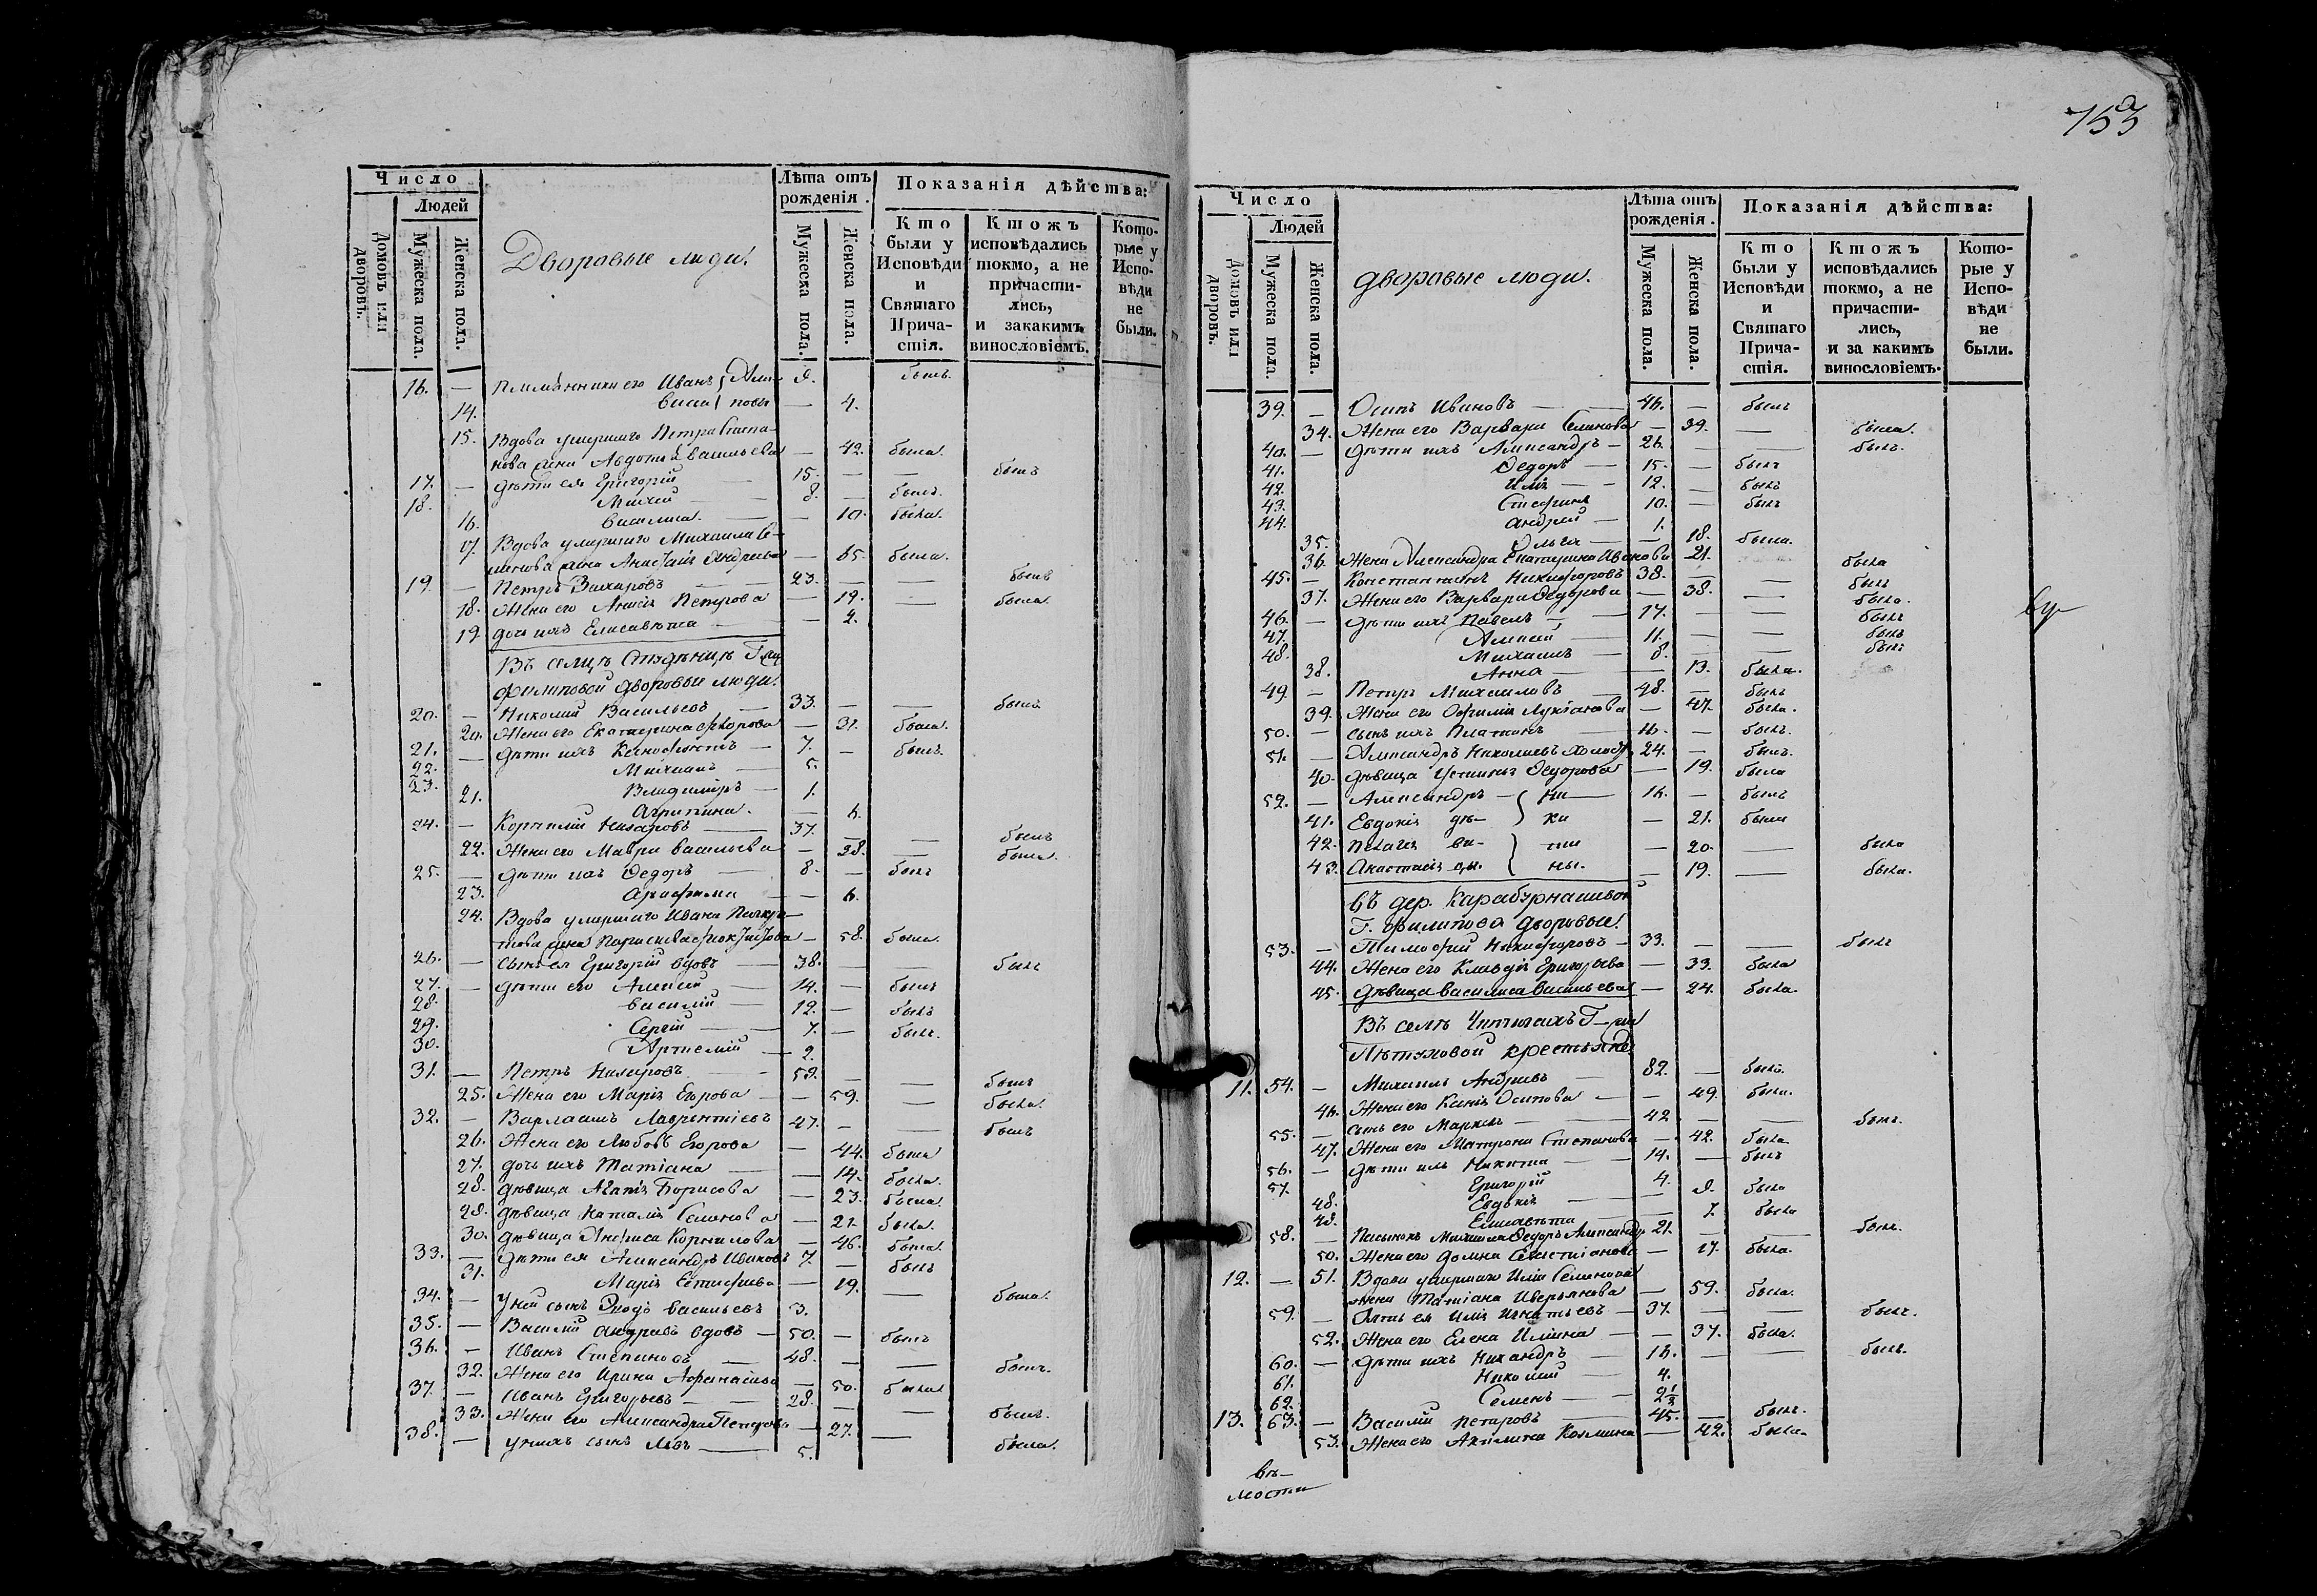 753
Число
Людей
Домовъ или дворовъ.
Мужеска пола.
Женска пола.
Дворовые люди.
Лѣта отъ рожденія.
Мужеска пола.
Женска пола.
Показанія дѣйства:
Кто были у Исповѣди и Святаго Причастія.
Ктожъ исповѣдались токмо, а не причастились, и закакимъ винословіемъ.
Которые у Исповѣди не были.
16. — 9. былъ.
14. — 4.
15. Вдова умершаго Петра Степа-
нова жена Авдотья Васильева — 42. была.
17. — дѣти ея Григорій 15. — — былъ
18. 8. — былъ.
16. Василиса. — — 10. была.
17. Вдова умершаго Михаила Се-
менова жена — 65. была.
19. — Петръ Захаровъ — 23. — — былъ
18. Жена его Петрова — 19. — была.
19 дочь ихъ Елисавета — — 2.
Въ селцѣ Г-жи
Филиповой дворовые люди.
20. — Николай Васильевъ — 33. — — былъ
20. Жена его Екатерина — 31. была.
21. — дѣти ихъ 7. — былъ.
22. Михаилъ — 5.
23. Владиміръ — 1.
21. Агрипина. — 6.
24. — Корнилій Назаровъ — 37. — — былъ
22. Жена его Мавра Васильева — 38. — была.
25. — дѣти ихъ Ѳедоръ — 8. — былъ
23. — 6.
24. Вдова умершаго Ивана
жена Параскева — 58. была.
26. — сынъ ея Григорій вдовъ — 38. — — былъ
27. — дѣти его Алексій — 14. — былъ
28. Василій — 12. — былъ
29. Сергій — 7. — былъ.
30. Артемій — 2.
31. — Петръ Назаровъ — 59. — — былъ
25. Жена его Марія Егорова — — 59. — была.
32. — Варлаамъ Лаврентіевъ 47. — — былъ
26. Жена его Любовь Егорова — 44. была
27. дочь ихъ Татіана — — 14. была.
28. дѣвица Агапія Борисова — 23. была.
29. дѣвица Наталія Семенова — 21. была.
30. дѣвица Анфиса Корнилова — 46. была.
33. — дѣти ея Александръ Ивановъ 7. — былъ
31. Марія — 19. — была.
34. — у ней сынъ Васильевъ 3.
35. — Василій Андреевъ вдовъ — 50. — былъ
36. — Иванъ Степановъ — 48. — — былъ.
32. Жена его Ирина Афанасьева — 50. была
37. — Иванъ Григорьевъ — 28. — — былъ.
33. Жена его Александра Петрова — 27. — была.
38. — у нихъ сынъ Левъ — 5.
Число
Людей
Домовъ или дворовъ.
Мужеска пола.
Женска пола.
дворовые люди.
Лѣта отъ рожденія.
Мужеска пола.
Женска пола.
Показанія дѣйства:
Кто были у Исповѣди и Святаго Причастія.
Ктожъ исповѣдались токмо, а не причастились, и за какимъ винословіемъ.
Которые у Исповѣди не были.
39. — Осипъ Ивановъ — 46. — былъ
34. Жена его Варвара Семенова — 39. — была.
40. — дѣти ихъ Александръ — 26. — — былъ.
41. Ѳедоръ — 15. — былъ
42. Илья — 12. — былъ
43. Стефанъ 10. — былъ
44. Андрей — 1.
35. Ольга — — 18. была.
36. Жена Александра Екатерина Иванова 21. — была
45. — Константинъ Никифоровъ 38. — — былъ
37. Жена его Варвара Ѳедорова — 38. — была.
46. — дѣти ихъ Павелъ — 17. — — былъ
47. Алексій — 11. — — былъ
48. Михаилъ — 8. — — былъ
38. Анна — — 13. была.
49. — Петръ Михаиловъ — 48. — былъ
39. Жена его Софія — 47. была.
50. — сынъ ихъ Платонъ — 16. — былъ.
51. — Александръ Николаевъ 24. — былъ.
40. дѣвица Устинья Ѳедорова — 19. была
52. — Александръ — 16. — былъ
41. Евдокія — 21. была
42. Пелагія — 20. — была
43. Анастасія — 19. — была.
Въ дер.
Г. Филипова дворовые.
53. — Тимофей Никифоровъ — 33. — — былъ
44. Жена его Клавдія Григорьева — 33. была
45. дѣвица Василиса Васильева — 24. была.
Въ селѣ Г-жи
крестьяне
11. 54. — Михаилъ Андреевъ — 82. — былъ.
46. Жена его Ксенія Осипова — — 49. была.
55. — сынъ его Маркелъ — 42 — — былъ.
47. Жена его Матрона Степанова — 42. была
56. — дѣти ихъ Никита — 14. — былъ
57. Григорій 4.
48. Евдокія — — 9. была
49. Елисавета — — 7. была
58. — Пасынокъ Михаила Ѳедоръ 21. — — былъ.
50. Жена его Домна — 17. была.
12. — 51. Вдова умершаго Иліи Семенова
жена Татіана — 59. была.
59. — Зять ея Илія Игнатьевъ — 37. — — былъ.
52. Жена его Елена Ильина — — 37. была.
60. — дѣти ихъ Никандръ — 16. — — былъ.
61. Николай — 4.
62. Семенъ — 2½
13. 63. — Василій — 45. — былъ.
53. Жена его Акилина Козмина — 42. была.